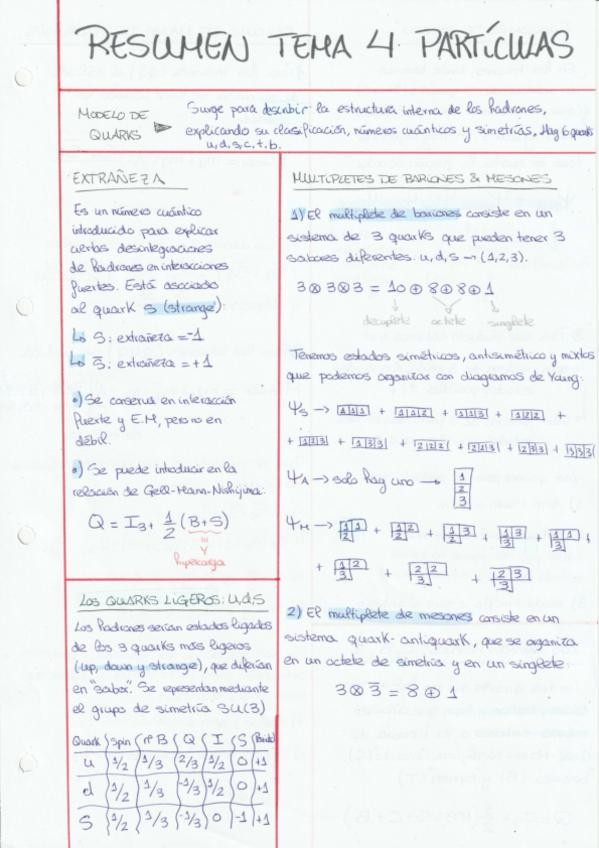 RESUMEN TEMA 4 PARTÍCULAS
MODELO DE
QUARKS
Surge para describir la estructura interna de los hadrones,
explicando su clasificación, números cuánticos y simetrías. Hay 6 quarks
u, d, s, c, t, b.
EXTRAÑEZA
Es un número cuántico
introducido para explicar
ciertas desintegraciones
de hadrones en interacciones
fuertes. Está asociado
al quark s (strange)
↳ S: extrañeza = -1
↳ S̅: extrañeza = +1
•) Se conserva en interacción
fuerte y E.M, pero no en
débil.
•) Se puede introducir en la
relación de Gell-Mann-Nishijima:
Q = I₃ + 1/2 (B+S)
=
Y
hipercarga
LOS QUARKS LIGEROS: u,d,s
Los hadrones serían estados ligados
de los 3 quarks más ligeros
(up, down y strange), que diferían
en "sabor". Se representan mediante
el grupo de simetría SU(3)
Quark Spin nº B Q I S Paridad
u 1/2 1/3 2/3 1/2 0 +1
d 1/2 1/3 -1/3 1/2 0 +1
s 1/2 1/3 -1/3 0 -1 +1
MULTIPLETES DE BARIONES & MESONES
1) El multiplete de bariones consiste en un
sistema de 3 quarks que pueden tener 3
sabores diferentes: u, d, s → (1,2,3).
3 ⊗ 3 ⊗ 3 = 10 ⊕ 8 ⊕ 8 ⊕ 1
decuplete octete singlete
Tenemos estados simétricos, antisimétrico y mixtos
que podemos organizar con diagramas de Young:
Ψs → 111 + 112 + 113 + 122 +
+ 123 + 133 + 222 + 223 + 233 + 333
ΨA → solo hay uno → 1
2
3
ΨM → 11 + 12 + 13 + 11 +
2 2 2 3
+ 12 + 22 + 23
3 3 3
2) El multiplete de mesones consiste en un
sistema quark-antiquark, que se organiza
en un octete de simetría y en un singlete:
3 ⊗ 3̅ = 8 ⊕ 1